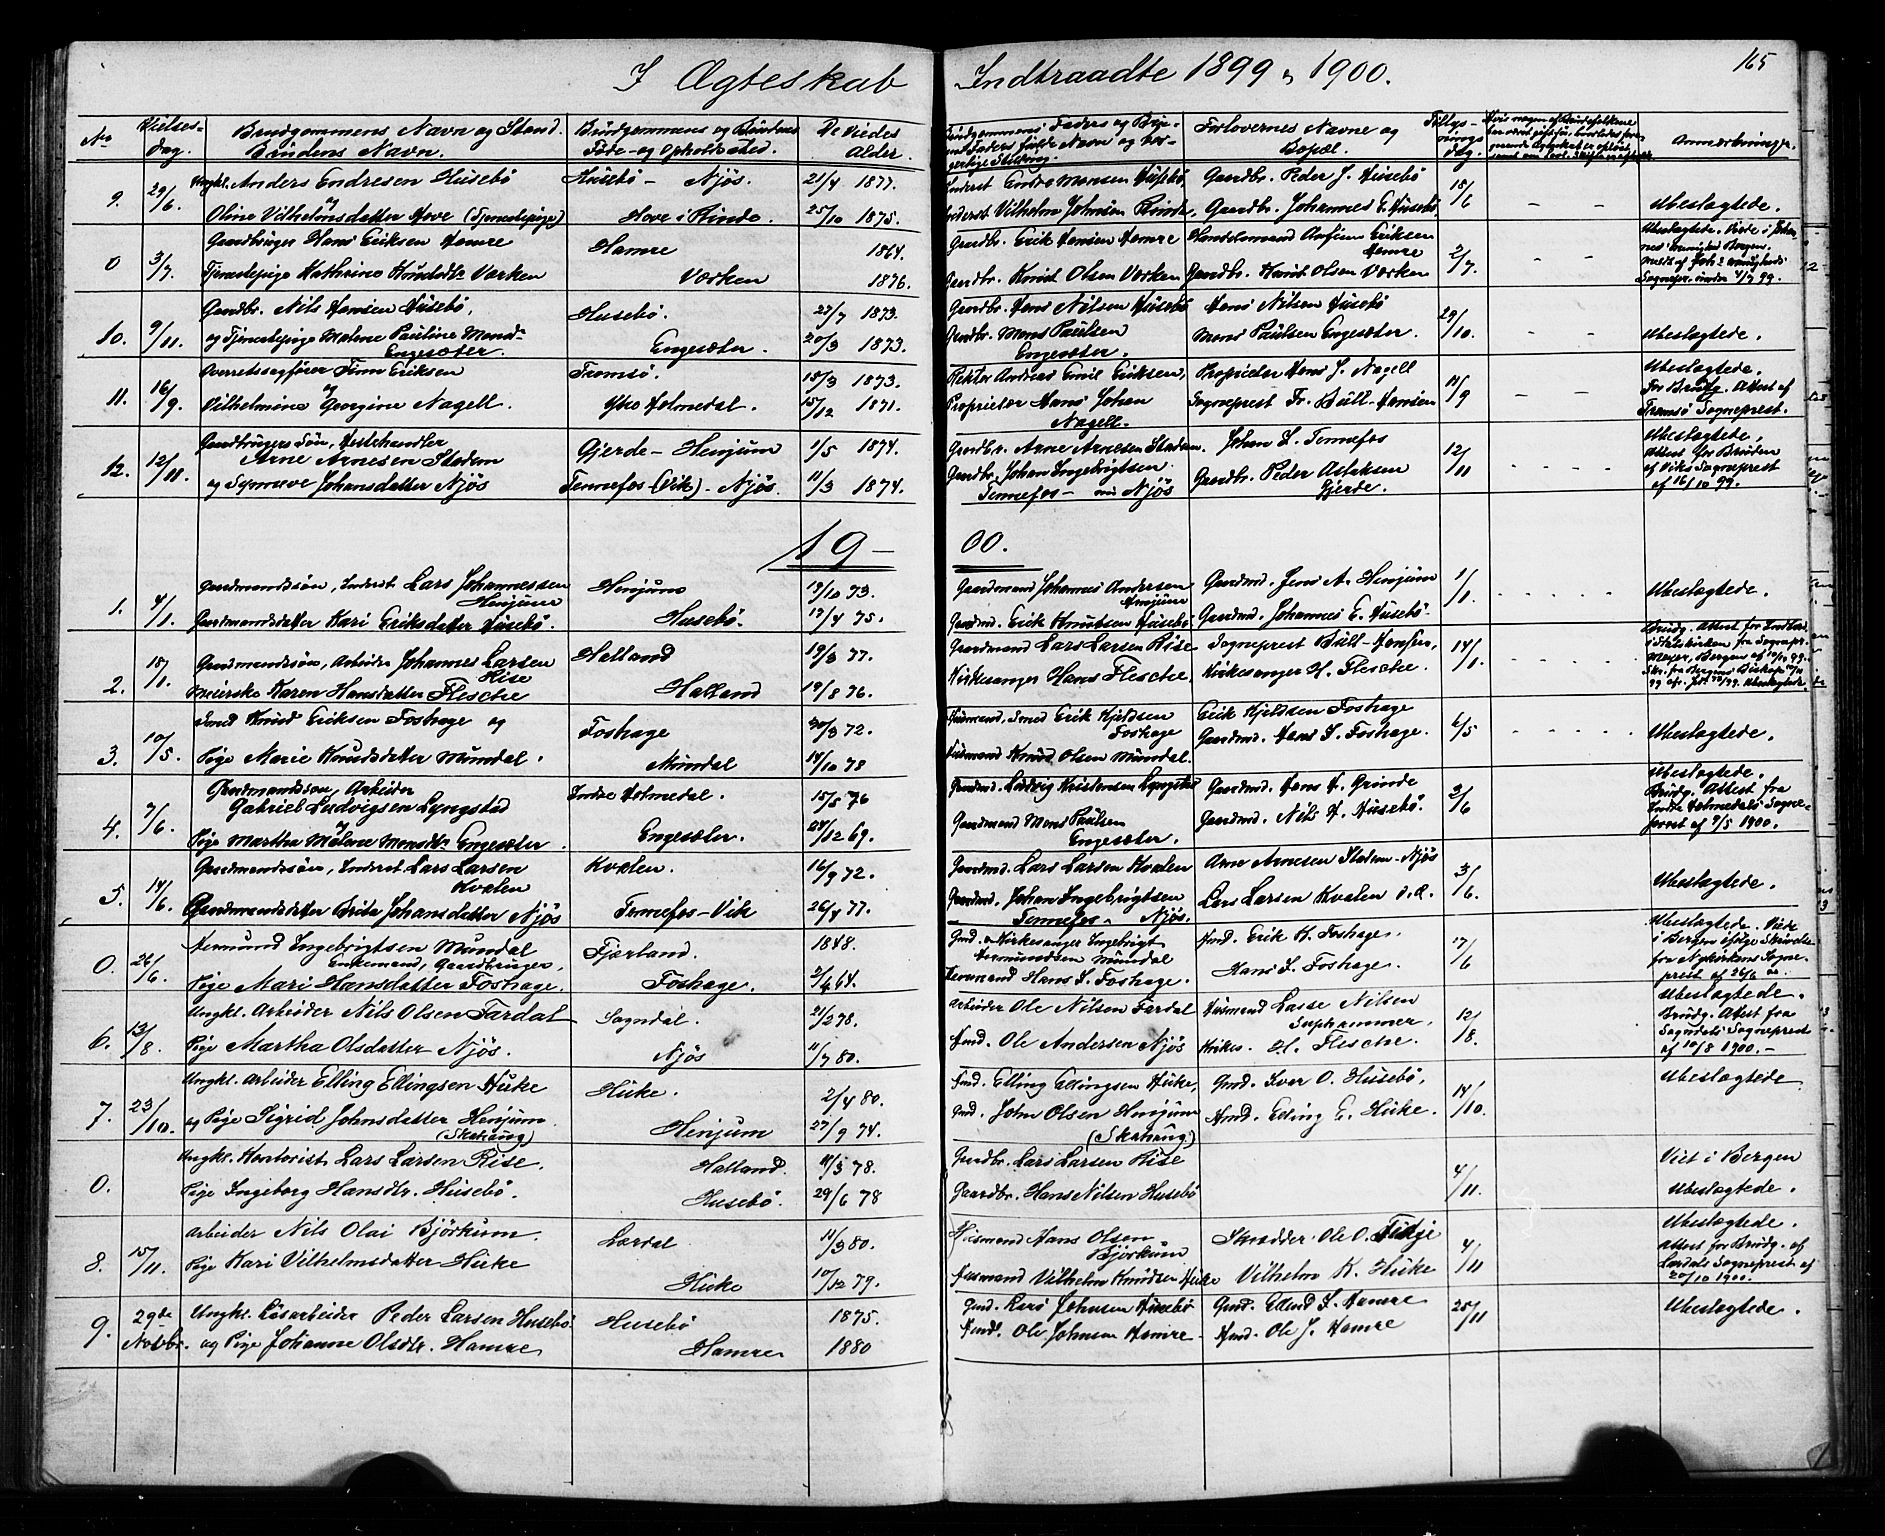 165
I Ægteskab Indtraadte 1899 & 1900.
No
Vielses-
dag.
Brudgommens Navn og Stand.
Brudens Navn.
Brudgommens og Brudens
Føde- og Opholdssted.
De Viedes
Alder.
Forlovernes Navne og
Bopæl.
Anmærkninger
9. 29/6. Ungkl. Anders Endresen Husebö Husebö - Njös. 21/4 1877. Inderst Endre Monsen Husebö Gaardbr. Peder J. Husebö 18/6
og
Oline Vilhelmsdatter Hove (Tjenestepige) Hove i Rinde. 25/10 1875. Inderst Vilhelm Johnsen Rinde, Gaardbr. Johannes E. Husebö - - Ubeslægtede.
0 3/7. Gaardbruger Hans Eriksen Hamre Hamre 1864. Gaardbr. Erik Hansen Hamre Handelsmand Anfinn Eriksen
Hamre 2/7.
Tjenestepige Kathrine Knudsdtr Værken Værken 1876. Gaardbr. Knud Olsen Værken Gaardbr. Knud Olsen Værken
Ubeslægtede. Viede i Johan-
nes menighed Bergen.
Sognepr.
10. 9/11. Gaardbr. Nils Hansen Husebö, Husebö. 27/7 1873. Gaardbr. Hans Nilsen Husebö Hans Nilsen Husebö 29/10.
og Tjenestepige Malene Pauline Monsd-
Engesæter. Engesæter. 20/3 1873. Gaardbr. Mons Paulsen
Engesæter. Mons Paulsen Engesæter. - - Ubeslægtede.
11. 16/9. Overretssagfører Finn Eriksen Tromsö. 18/3 1873. Rektor Andreas Emil Eriksen, Proprietær Hans J. Nagell 14/9
og
Vilhelmine Georgine Nagell. Ytre Holmedal. 15/12 1871. Proprietær Hans Johan
Nagell. Sogneprest Fr. Bull-Hansen - -
Ubeslægtede.
For Brudg. Attest af
Tromsö Sogneprest.
12. 12/11. Gaardbrugers Søn, Hestehandler
Arne Arnesen Stadem Gjerde - Henjum 1/5 1874. Gaardbr. Arne Arnesen Stadem. Johan L. Tennefos 12/11
og Synneve Johansdatter Njös Tennefos - (Vik) - Njös. 11/3 1874. Gaardbr. Johan Ingebrigtsen
Tennefos - nu Njös Gaardbr. Peder Aslaksen
Gjerde.
Ubeslægtede.
Attest for Bruden
af Viks Sogneprest
af 16/10 99.
19-00.
1. 4/1. Gaardmandssön, Inderst Lars Johannessen
Henjum Henjum 19/10 73. Gaardmand Johannes Andersen
Henjum Gaardmd. Jens A. Henjum 1/1.
Gaardmandsdatter Kari Eriksdatter Husebö. Husebö. 17/4 75. Gaardmd. Erik Knutsen Husebö Gaardmd. Johannes E. Husebö. Ubeslægtede.
2. 18/1. Gaardmandssön, Arbeider Johannes Larsen
Rise Helland 19/3 77. Gaardmand Lars Larsen Rise Sogneprest Bull-Hansen, 14/1.
Meierske Karen Hansdatter Flesche Hatland 19/8 76. Kirkesanger Hans Flesche. Kirkesanger H. Flesche.
3. 10/5. Smed Knud Eriksen Foshage og Foshage 30/3 72. Husmand, Smed Erik Kjeldsen
Foshage Erik Kjeldsen Foshage 6/5
Pige Marie Knudsdatter Mundal. Mundal 14/10 78 Husmand Knud Olsen Mundal. Gaardmd. Hans L. Foshage. Ubeslægtede.
4. 7/6. Gaardmandssön, Arbeider
Gabriel Ludvigsen Lyngstad Indre Holmedal. 15/5 76 Gaardmd. Ludvig Kristensen Lyngstad Gaardmd. Hans H. Grinde 2/6
og
Pige Martha Malene Monsdtr Engesæter. Engesæter. 24/12 69. Gaardmand Mons Paulsen
Engesæter. Gaardmd. Nils H. Husebö.
Ubeslægtede.
Brudg. Attest fra
Indre Holmedals Sogne-
prest af 9/5 1900.
5. 14/6. Gaardmandssön, Inderst Lars Larsen
Kvalen Kvalen. 16/9 72. Gaardmd. Lars Larsen Kvalen Arne Arnesen Stadem - Njös 3/6.
Gaardmandsdatter Brita Johansdatter Njös Tennefos - Vik 26/4 77. Gaardmd. Johan Ingebrigtsen
Tennefos - Njös. Lars Larsen Kvalen d. Æ. Ubeslægtede.
0. 26/6. Nermund Ingebrigtsen Mundal
Enkemand, Gaardbruger, Fjærland. 1848. Gmd. & Kirkesanger Ingebrigt
Nermundsen Mundal Hmd. Erik K. Foshage. 17/6
Pige Mari Hansdatter Foshage. Foshage. 2/4 64. Husmand Hans L. Foshage. Hans L. Foshage.
Ubeslægtede. Viede
i Bergen ifølge Skrivelse
fra Nykirkens Sogne-
prest af 26/6
6. 13/8. Ungkl. Arbeider Nils Olsen Fardal Sogndal. 21/2 78. Arbeider Ole Nilsen Fardal Husmand Lasse Nilsen
Suphammer. 12/8.
Pige Martha Olsdatter Njös. Njös 11/7 80. Hmd. Ole Andersen Njös Kirkes. H. Flesche.
Ubeslægtede.
Brudg. Attest fra
Sogndals Sogneprest
af 10/8 1900. -
7. 23/10. Ungkl. Arbeider Elling Ellingsen Huke Huke. 2/4 80. Hmd. Elling Ellingsen Huke, Gmd. Iver O. Husebö, 14/10. Ubeslægtede
og Pige Sigrid Johnsdatter Henjum
(Skahaug) Henjum 27/9 74. Gmd. John Olsen Henjum
(Skahaug) Hmd. Elling E. Huke.
0. Ungkl. Kontorist Lars Larsen Rise. Hatland. 11/3 78. Gaardbr. Lars Larsen Rise 4/11. Viet i Bergen
Pige Ingeborg Hansdtr. Husebö. Husebö. 29/6 78 Gaardbr. Hans Nilsen Husebö Ubeslægtede.
8. 15/11. Arbeider Nils Olai Björkum. Lærdal 11/3 80. Husmand Hans Olsen
Björkum Skrædder Ole O. Tidje 4/11
Pige Kari Vilhelmsdatter Huke Huke 10/12 79. Husmand Vilhelm Knudsen Huke Vilhelm K. Huke
Ubeslægtede.
Attest for Brudg. af
Lærdals Sogneprest af
20/10 1900.
9. 29de
Novbr. Ungkl. Løsarbeider Peder Larsen Husebö Husebö 1875. Gmd. Lars Johnsen Husebö Gmd. Ellend L. Hamre 25/11 Ubeslægtede.
og Pige Johanne Olsdtr. Hamre Hamre 1880 Hmd. Ole Johnsen Hamre Hmd. Ole J. Hamre